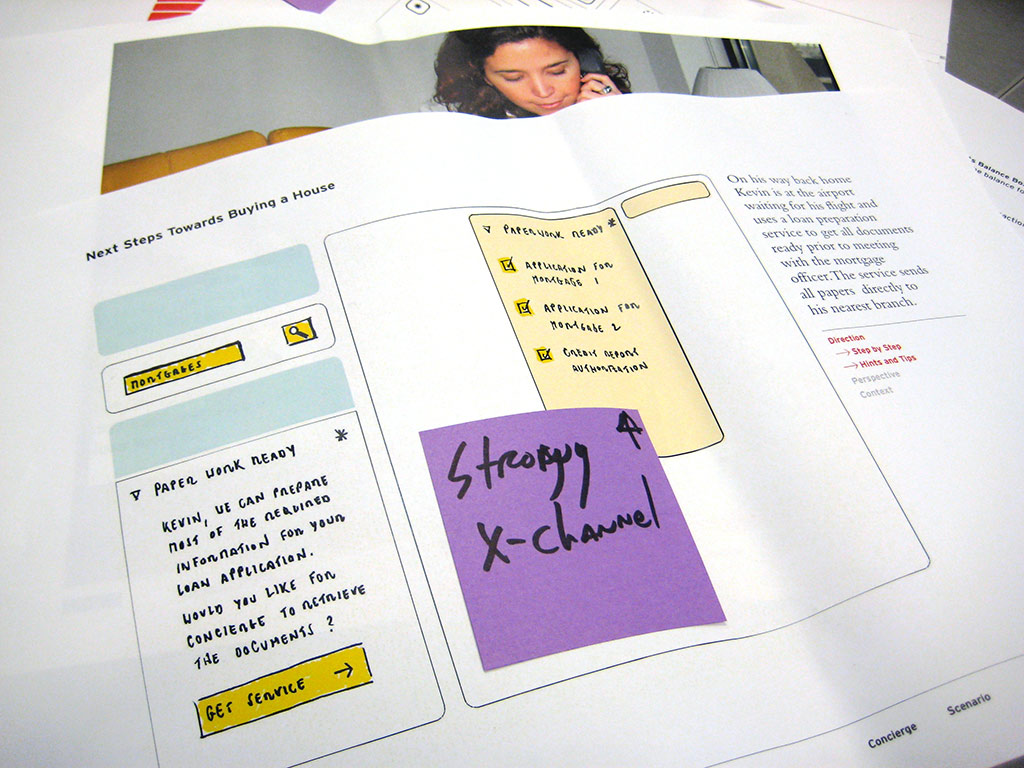 Next Steps Towards Buying a House
MORTGAGES
▽ PAPER WORK READY *
KEVIN, WE CAN PREPARE
MOST OF THE REQUIRED
INFORMATION FOR YOUR
LOAN APPLICATION.
WOULD YOU LIKE FOR
CONCIERGE TO RETRIEVE
THE DOCUMENTS ?
GET SERVICE →
▽ PAPER WORK READY *
APPLICATION FOR
MORTGAGE 1
APPLICATION FOR
MORTGAGE 2
CREDIT REPORT
Strongg
X-channel
On his way back home
Kevin is at the airport
waiting for his flight and
uses a loan preparation
service to get all documents
ready prior to meeting
with the mortgage
officer.The service sends
all papers directly to
his nearest branch.
Direction
→ Step by Step
→ Hints and Tips
Perspective
Context
Concierge
Scenario
's Balance Bo
balance fo
action